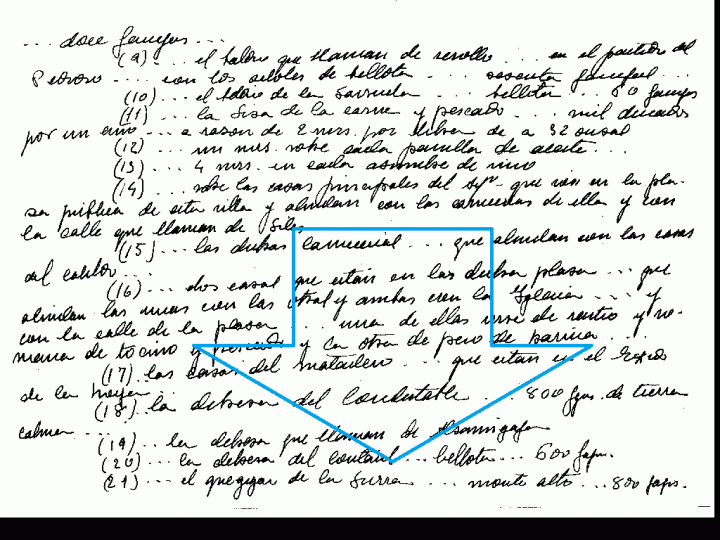 ... doce fanegas ...
(9) ... el baldio que llaman de revollo ... en el partido del
Pedroso .... con los arboles de bellota .... sesenta fanegas ...
(10) ... el baldio de la Sarzuela ... bellota .. 60 fanegas
(11) ... la Sisa de la carne y pescado ... mil ducados
por un año ... a razon de 2 mrs. por libra de a 32 onzas
(12) ... un mrs. sobre cada panilla de aceite ...
(13) ... 4 mrs. en cada asumbre de vino
(14) ... sobre las casas principales del que van en la pla-
sa publica de esta villa y alindan con las carnicerias de ella y con
la calle que llaman de Siles
(15) ... las dichas carnicerias ... que alindan con las casas
del cabildo ...
(16) ... dos casas que estan en las dichas plasa ... que
alindan las unas con las otras y ambas con la Iglesia ... y
con la calle de la plasa ... una de ellas sirve de
de tocino y pescado y la otra de peso de harina ...
(17) las casas del matadero ... que estan en el
de la
(18) la dehesa del Condestable ... 800 fgas. de tierra
calma ...
(19) ... la dehesa que llaman de
(20) ... la dehesa del ... bellota ... 600 fags.
(21) ... el quegigar de la Surra ... monte alto ... 800 fags.